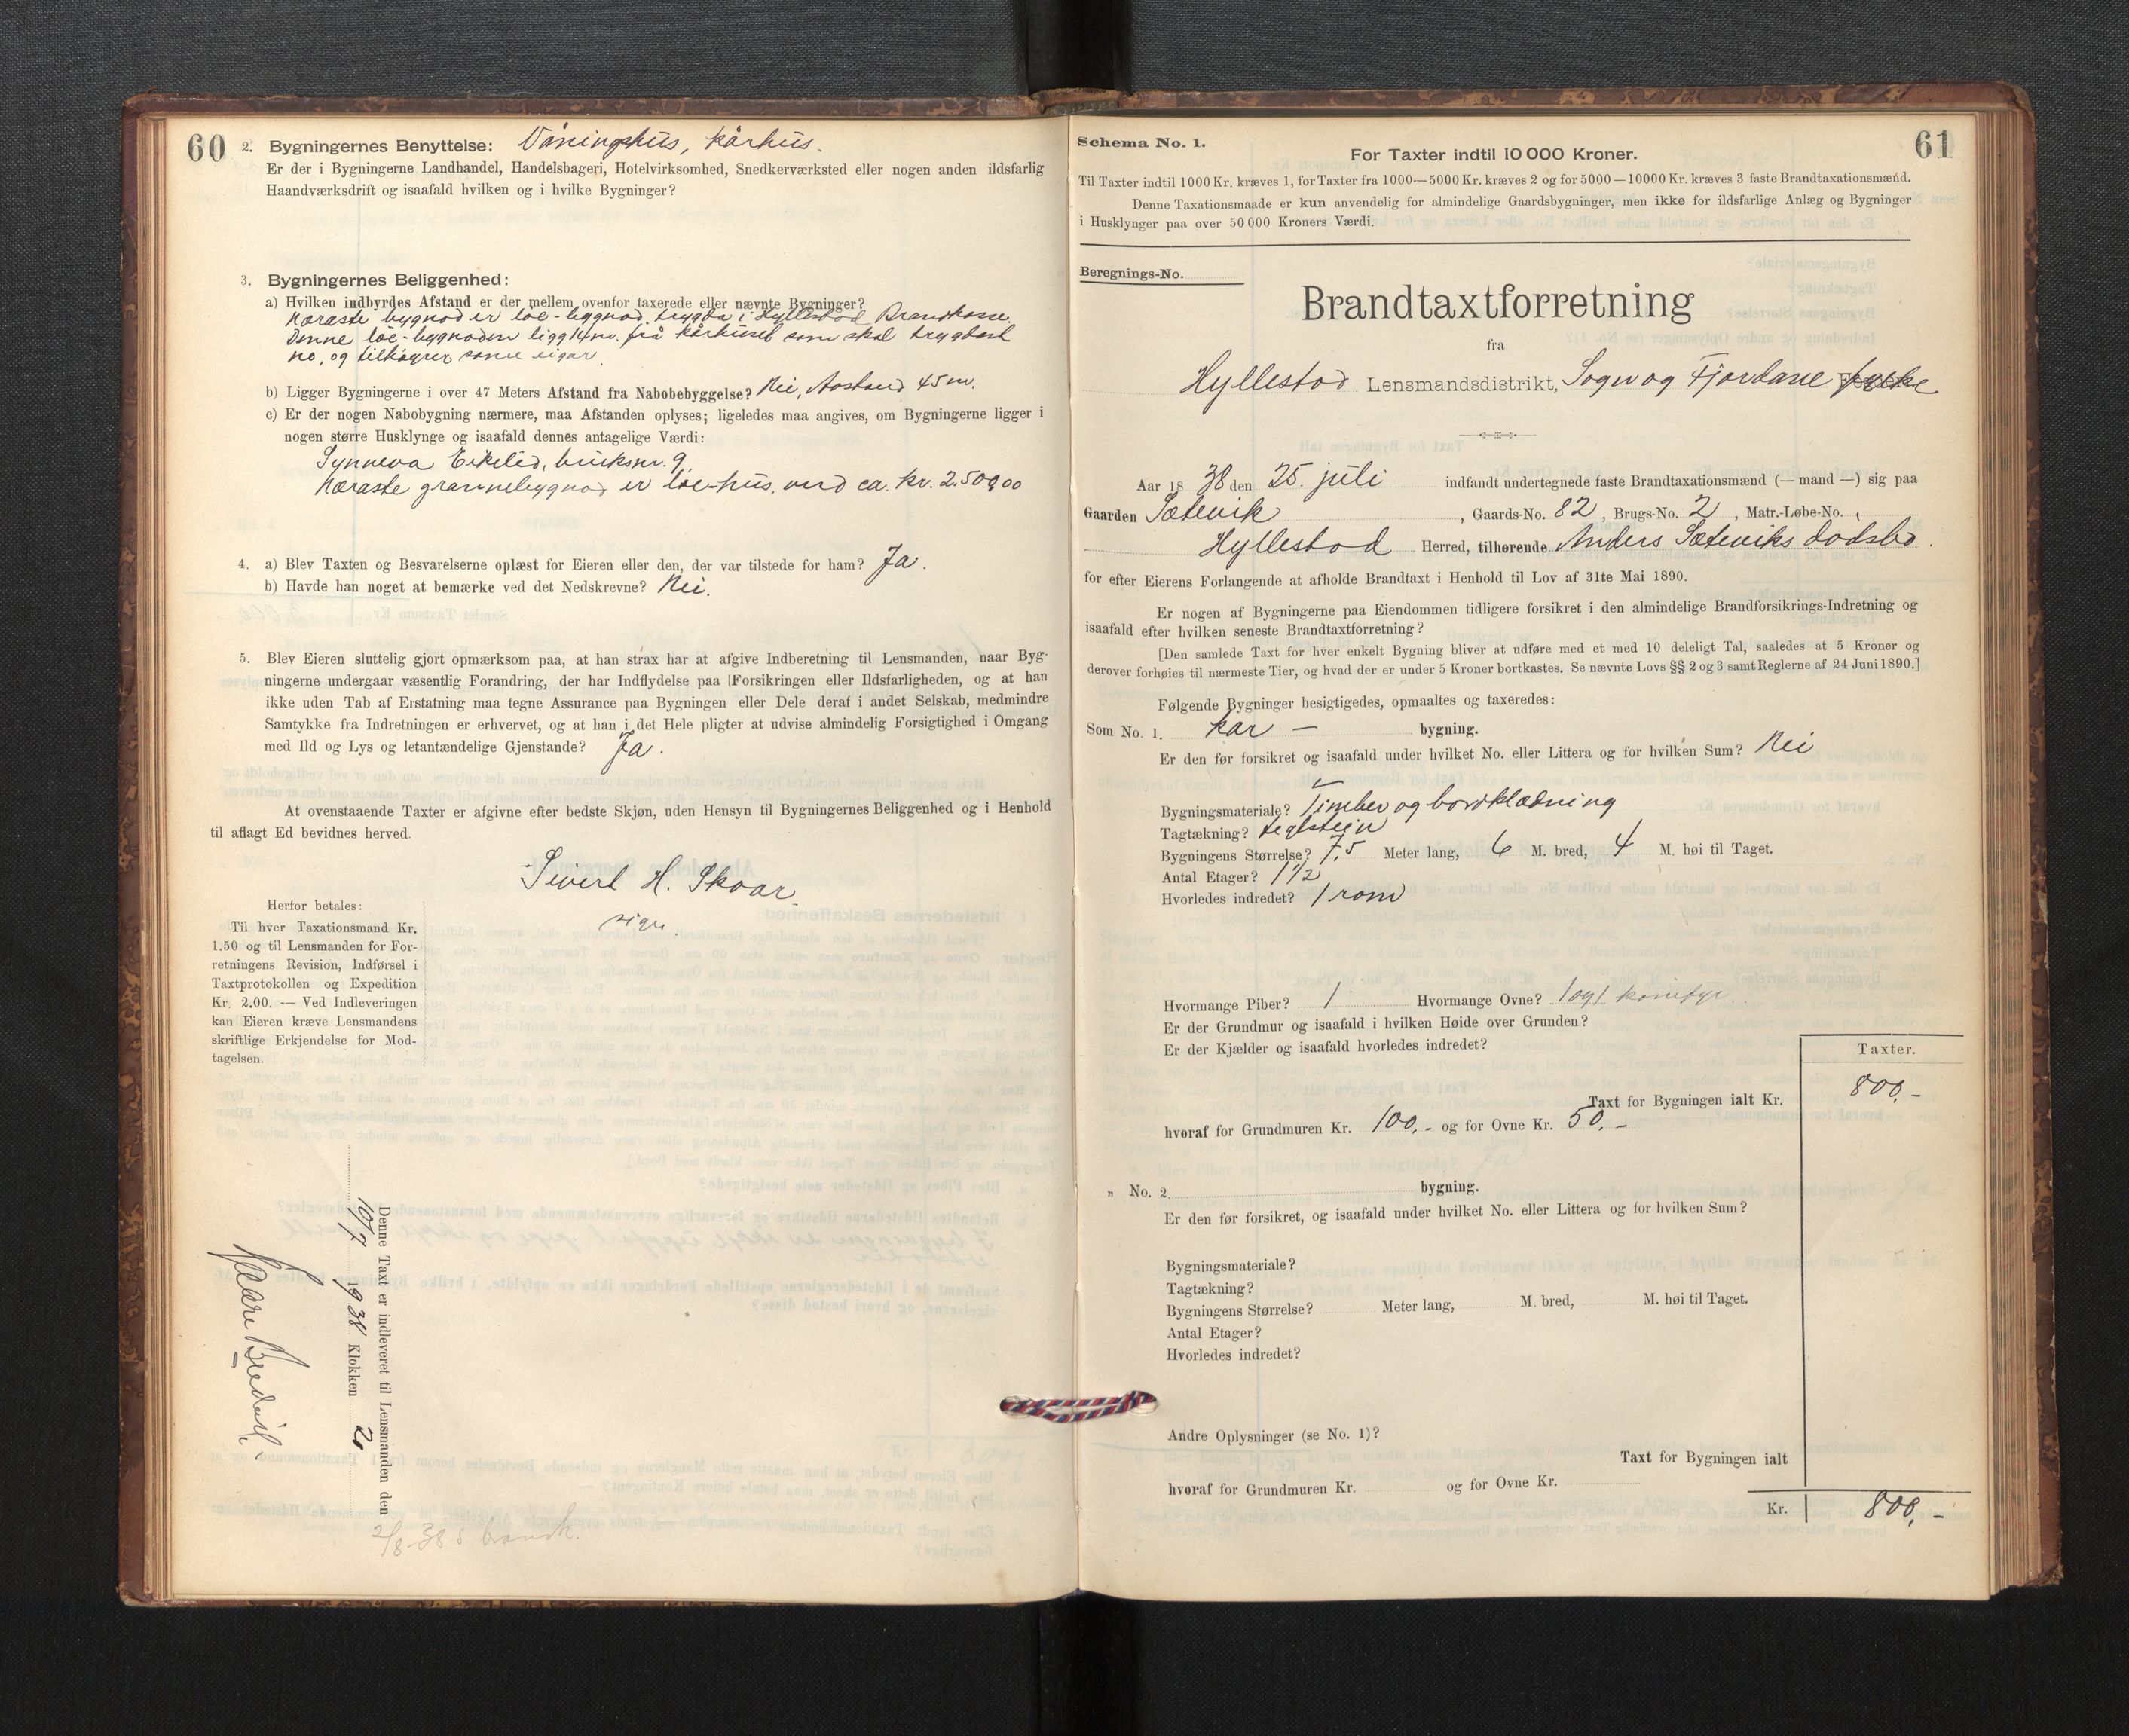 60
2. Bygningernes Benyttelse: Våningshus, kårhus.
Er der i Bygningerne Landhandel, Handelsbageri, Hotelvirksomhed, Snedkerværksted eller nogen anden ildsfarlig
Haandværksdrift og isaafald hvilken og i hvilke Bygninger?
3. Bygningernes Beliggenhed:
a) Hvilken indbyrdes Afstand er der mellem ovenfor taxerede eller nævnte Bygninger?
Næraste bygnad er løe-bygnad, trygda i Hyllestad Brandkasse.
Denne løe-bygnaden ligg 14 m. frå kårhuset som skal trygdast
no, og tilhøyrer same eigar.
b) Ligger Bygningerne i over 47 Meters Afstand fra Nabobebyggelse? Nei, Avstand 45 m.
c) Er der nogen Nabobygning nærmere, maa Afstanden oplyses; ligeledes maa angives, om Bygningerne ligger i
nogen større Husklynge og isaafald dennes antagelige Værdi:
Synneva Eikelid, bruksnr. 9.
Næraste grannebygnad er løe-hus, verd ca. kr. 2.500,00
4. a) Blev Taxten og Besvarelserne oplæst for Eieren eller den, der var tilstede for ham? Ja.
b) Havde han noget at bemærke ved det Nedskrevne? Nei.
5. Blev Eieren sluttelig gjort opmærksom paa, at han strax har at afgive Indberetning til Lensmanden, naar Byg-
ningerne undergaar væsentlig Forandring, der har Indflydelse paa Forsikringen eller Ildsfarligheden, og at han
ikke uden Tab af Erstatning maa tegne Assurance paa Bygningen eller Dele deraf i andet Selskab, medmindre
Samtykke fra Indretningen er erhvervet, og at han i det Hele pligter at udvise almindelig Forsigtighed i Omgang
med Ild og Lys og letantændelige Gjenstande? Ja.
At ovenstaaende Taxter er afgivne efter bedste Skjøn, uden Hensyn til Bygningernes Beliggenhed og i Henhold
til aflagt Ed bevidnes herved.
Sivert H. Skoar.
sign.
Herfor betales:
Til hver Taxationsmand Kr.
1.50 og til Lensmanden for For-
retningens Revision, Indførsel i
Taxtprotokollen og Expedition
Kr. 2.00. — Ved Indleveringen
kan Eieren kræve Lensmandens
skriftlige Erkjendelse for Mod-
tagelsen.
Denne Taxt er indleveret til Lensmanden den
10/7 1938 Klokken 20
2/8-38 s brandk.
61
Schema No. 1.
For Taxter indtil 10 000 Kroner.
Til Taxter indtil 1000 Kr. kræves 1, for Taxter fra 1000—5000 Kr. kræves 2 og for 5000—10000 Kr. kræves 3 faste Brandtaxationsmænd.
Denne Taxationsmaade er kun anvendelig for almindelige Gaardsbygninger, men ikke for ildsfarlige Anlæg og Bygninger
i Husklynger paa over 50 000 Kroners Værdi.
Beregnings-No.
Brandtaxtforretning
fra
Hyllestad Lensmandsdistrikt, Sogn og Fjordane fylke
Aar 18 38 den 25. juli indfandt undertegnede faste Brandtaxationsmænd (— mand —) sig paa
Gaarden Sætevik, Gaards-No. 82, Brugs-No. 2, Matr.-Løbe-No.
Hyllestad Herred, tilhørende Anders Sæteviks dødsbo.
for efter Eierens Forlangende at afholde Brandtaxt i Henhold til Lov af 31te Mai 1890.
Er nogen af Bygningerne paa Eiendommen tidligere forsikret i den almindelige Brandforsikrings-Indretning og
isaafald efter hvilken seneste Brandtaxtforretning?
[Den samlede Taxt for hver enkelt Bygning bliver at udføre med et med 10 deleligt Tal, saaledes at 5 Kroner og
derover forhøies til nærmeste Tier, og hvad der er under 5 Kroner bortkastes. Se nævnte Lovs §§ 2 og 3 samt Reglerne af 24 Juni 1890.]
Følgende Bygninger besigtigedes, opmaaltes og taxeredes:
Som No. 1. kår — bygning.
Er den før forsikret og isaafald under hvilket No. eller Littera og for hvilken Sum? Nei
Bygningsmateriale? Timber og bordklædning
Tagtækning? teglstein
Bygningens Størrelse? 7,5 Meter lang, 6 M. bred, 4 M. høi til Taget.
Antal Etager? 1 1/2
Hvorledes indredet? 1 rom
Hvormange Piber? 1 Hvormange Ovne? 1 og 1 komfyr.
Er der Grundmur og isaafald i hvilken Høide over Grunden?
Er der Kjælder og isaafald hvorledes indredet?
Taxter.
Taxt for Bygningen ialt Kr. 800,-
hvoraf for Grundmuren Kr. 100,- og for Ovne Kr. 50,-
„ No. 2 bygning.
Er den før forsikret, og isaafald under hvilket No. eller Littera og for hvilken Sum?
Bygningsmateriale?
Tagtækning?
Bygningens Størrelse? Meter lang, M. bred, M. høi til Taget.
Antal Etager?
Hvorledes indredet?
Andre Oplysninger (se No. 1)?
Taxt for Bygningen ialt
hvoraf for Grundmuren Kr. og for Ovne Kr.
Kr. 800,-